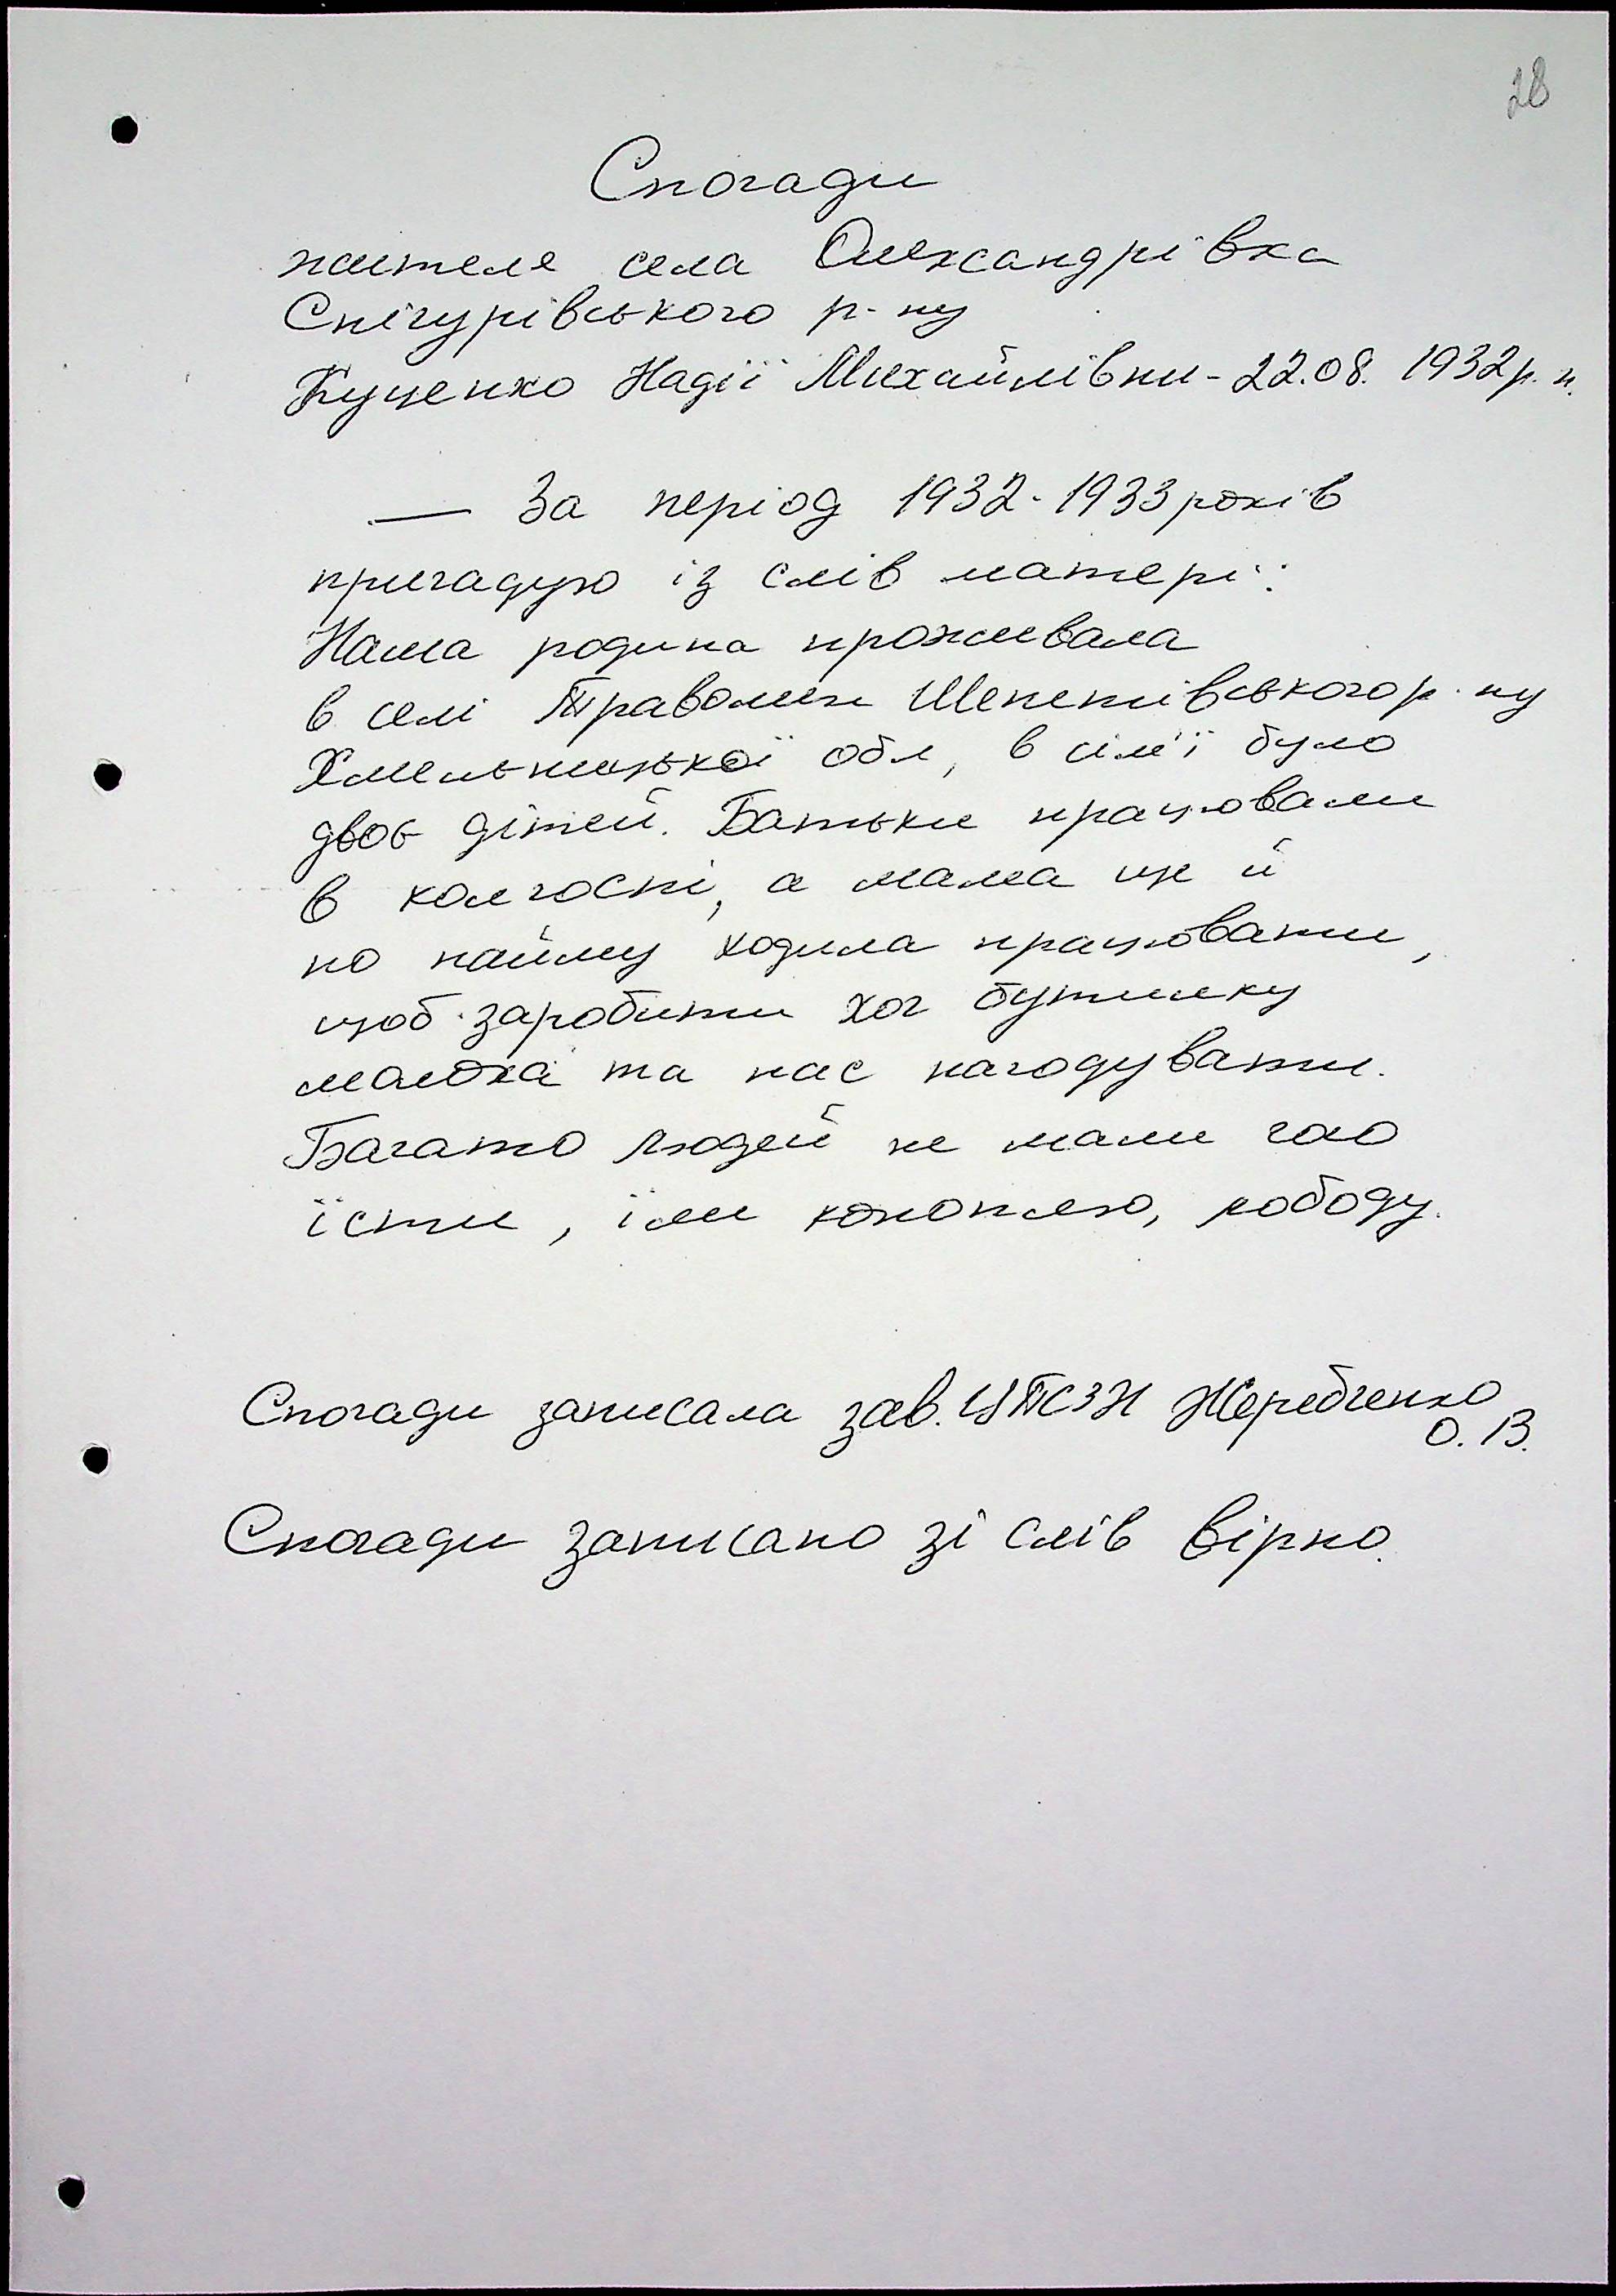 28
Спогади
жителя села Олександрівка
Снігурівського р-ну
Куценко Надії Михайлівни - 22.08. 1932 р. н.
— За період 1932-1933 років
пригадую із слів матері:
Наша родина проживала
в селі Траволин Шепетівського р-ну
Хмельницької обл, в сім'ї було
двоє дітей. Батьки працювали
в колгоспі, а мама ще й
по найму ходила працювати,
щоб заробити хоч бутилку
молока та нас нагодувати.
Багато людей не мали чого
їсти, їли коноплю, лободу.
Спогади записала зав. ЦПСЗН Жеребченко
О. В.
Спогади записано зі слів вірно.